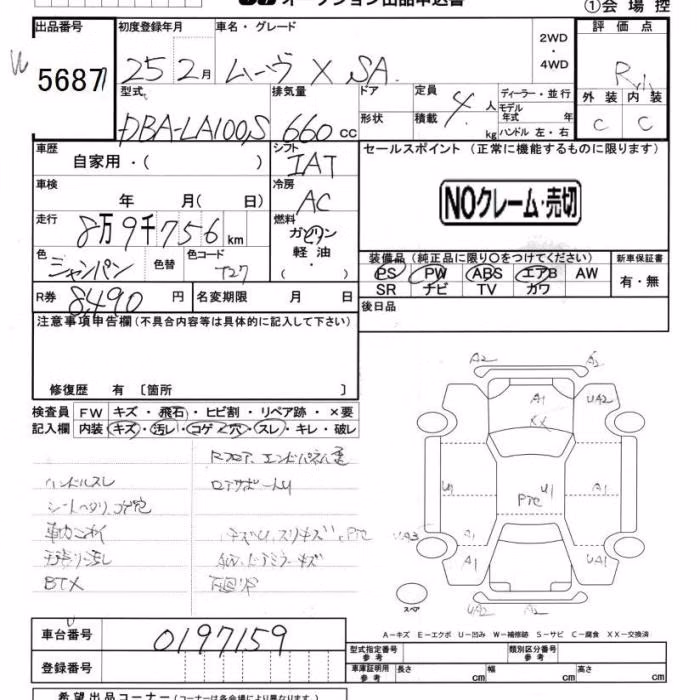 オークション出品申込書
①会場控
出品番号 初度登録年月 車名・グレード 評価点
W 5687 25 2月 ムーヴ X SA 2WD・4WD R
型式 排気量 ドア 定員 ディーラー・並行 外装 内装
DBA-LA100S 660cc 形状 積載 4人 kg モデル年式 年 C C
ハンドル 左・右
車歴 シフト セールスポイント (正常に機能するものに限ります)
自家用・( ) IAT
車検 冷房
年 月( 日) AC NOクレーム・売切
走行 燃料
8万9千756km ガソリン
軽油・( )
色 色替 色コード 装備品 (純正品に限り○をつけてください) 新車保証書
シャンパン T27 PS PW ABS エアB AW 有・無
SR ナビ TV カワ
R券 8,490円 名変期限 月 日 後日品
注意事項申告欄(不具合内容等は具体的に記入して下さい)
修復歴 有 〔箇所 〕
検査員 FW キズ・飛石・ヒビ割・リペア跡・×要
記入欄 内装 キズ・汚レ・コゲ・穴・スレ・キレ・破レ
ハンドルスレ
BTX
A2 A2
A1 UA2
XX
U1 U1 A1
PTC
UA3 A1 UA1
UA2 A2
スペア
A－キズ E－エクボ U－凹み W－補修跡 S－サビ C－腐食 XX－交換済
車台番号 0197159
型式指定番号 参考 類別区分番号 参考
登録番号 車庫証明用 参考 長さ cm 幅 cm 高さ cm
希望出品コーナー(コーナーは各会場により異なります。)